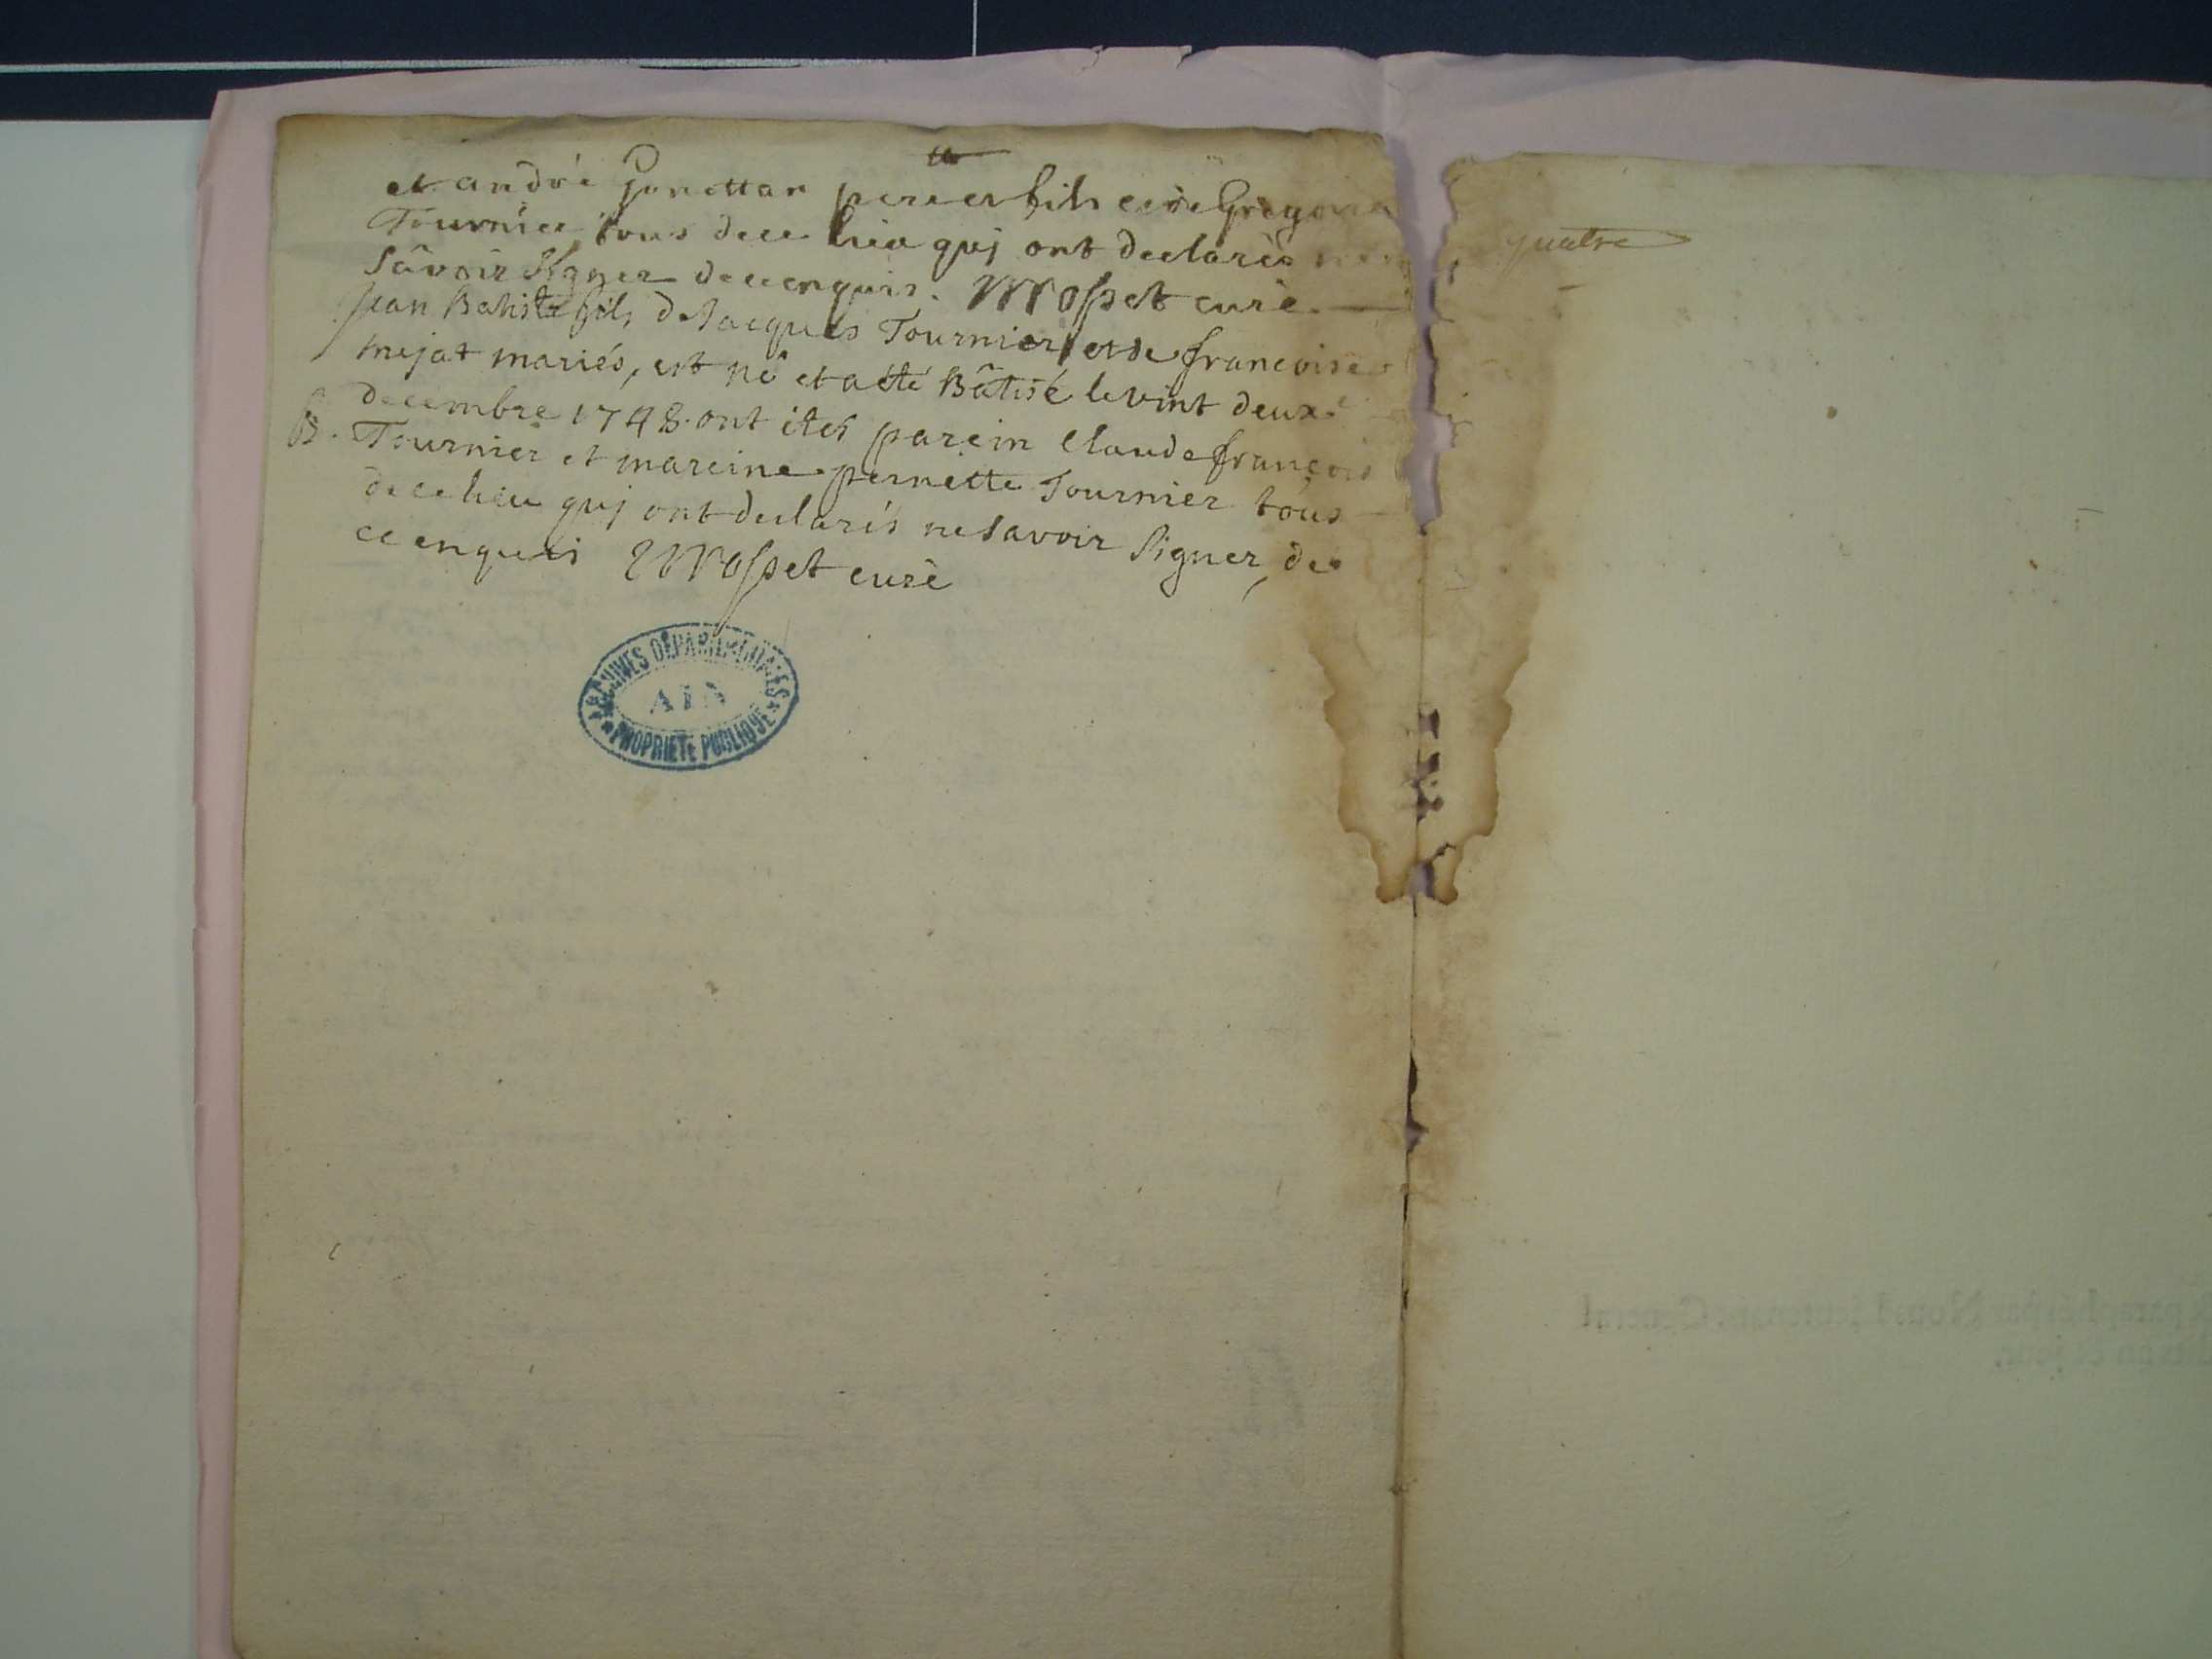 et andré Gonettan pere et fils et de Gregoire
Tournier, tous de ce lieu quj ont declarés
sâvoir signer de ce enquis. Mospet curé
Jean Batiste fils de Jacques Tournier et de francoise
mejat mariés, est né et a été Bâtisé le vint deux
B. decembre 1748. ont étés parein Claude francois
Tournier et mareine pernette Tournier tous
de ce lieu quj ont declarés ne savoir signer, de
ce enquis Mospet curé
ARCHIVES DÉPARTEMENTALES
AIN
PROPRIÉTÉ PUBLIQUE
quatre